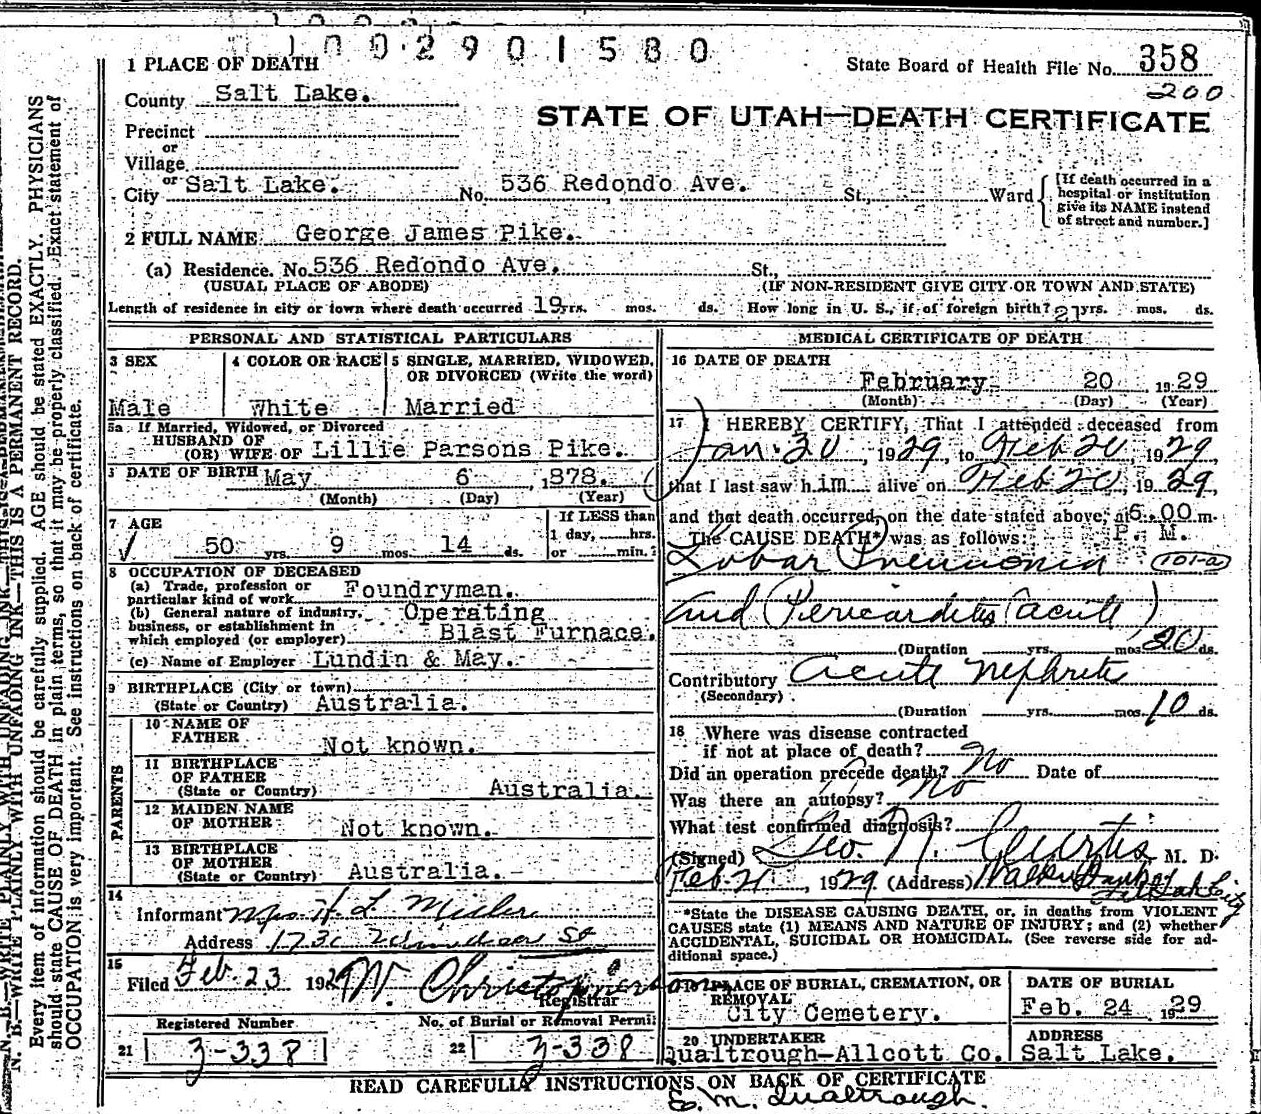 1002901580
1 PLACE OF DEATH
State Board of Health File No. 358
200
County Salt Lake.
STATE OF UTAH—DEATH CERTIFICATE
Precinct
or
Village
or
City Salt Lake. No. 536 Redondo Ave. St., Ward
[If death occurred in a
hospital or institution
give its NAME instead
of street and number.]
2 FULL NAME George James Pike.
(a) Residence. No. 536 Redondo Ave. St.,
(USUAL PLACE OF ABODE) (IF NON-RESIDENT GIVE CITY OR TOWN AND STATE)
Length of residence in city or town where death occurred 19 yrs. mos. ds. How long in U. S., if of foreign birth? 21 yrs. mos. ds.
PERSONAL AND STATISTICAL PARTICULARS
3 SEX
Male
4 COLOR OR RACE
White
5 SINGLE, MARRIED, WIDOWED,
OR DIVORCED (Write the word)
Married
5a If Married, Widowed, or Divorced
HUSBAND OF
(OR) WIFE OF Lillie Parsons Pike.
DATE OF BIRTH May 6 ,1878.
(Month) (Day) (Year)
7 AGE
50 yrs. 9 mos. 14 ds.
If LESS than
1 day, hrs.
or min.?
8 OCCUPATION OF DECEASED
(a) Trade, profession or
particular kind of work Foundryman.
(b) General nature of industry, Operating
business, or establishment in
which employed (or employer) Blast Furnace.
(c) Name of Employer Lundin & May.
9 BIRTHPLACE (City or town)
(State or Country) Australia.
PARENTS
10 NAME OF
FATHER Not known.
11 BIRTHPLACE
OF FATHER
(State or Country) Australia.
12 MAIDEN NAME
OF MOTHER Not known.
13 BIRTHPLACE
OF MOTHER
(State or Country) Australia.
14
Informant Mrs. H L
Address
15
Filed Feb. 23 192
W. Christopherson
Registrar
Registered Number
21 3-338
No. of Burial or Removal Permit
22 3-338
MEDICAL CERTIFICATE OF DEATH
16 DATE OF DEATH
February 20 1929
(Month) (Day) (Year)
17 I HEREBY CERTIFY, That I attended deceased from
Jan. 30, 1929, to Feb 20, 1929,
that I last saw him alive on Feb 20, 1929,
and that death occurred, on the date stated above, at 6.00 m.
The CAUSE DEATH* was as follows: P. M.
Lobar Pneumonia 101-a
and Pericarditis (acute)
(Duration yrs. mos. 20 ds.
Contributory acute Nephritis
(Secondary)
(Duration yrs. mos. 10 ds.
18 Where was disease contracted
if not at place of death?
Did an operation precede death? No Date of
Was there an autopsy? No
What test confirmed diagnosis?
(Signed) Geo. N. Curtis M. D.
Feb. 21, 1929 (Address)
*State the DISEASE CAUSING DEATH, or, in deaths from VIOLENT
CAUSES state (1) MEANS AND NATURE OF INJURY; and (2) whether
ACCIDENTAL, SUICIDAL OR HOMICIDAL. (See reverse side for ad-
ditional space.)
19 PLACE OF BURIAL, CREMATION, OR
REMOVAL
City Cemetery.
DATE OF BURIAL
Feb. 24 1929
20 UNDERTAKER
Qualtrough-Allcott Co.
ADDRESS
Salt Lake.
READ CAREFULLY INSTRUCTIONS ON BACK OF CERTIFICATE
E. M. Qualtrough.
N. B.—WRITE PLAINLY WITH UNFADING INK—THIS IS A PERMANENT RECORD.
Every item of information should be carefully supplied. AGE should be stated EXACTLY. PHYSICIANS
should state CAUSE OF DEATH in plain terms, so that it may be properly classified. Exact statement of
OCCUPATION is very important. See instructions on back of certificate.